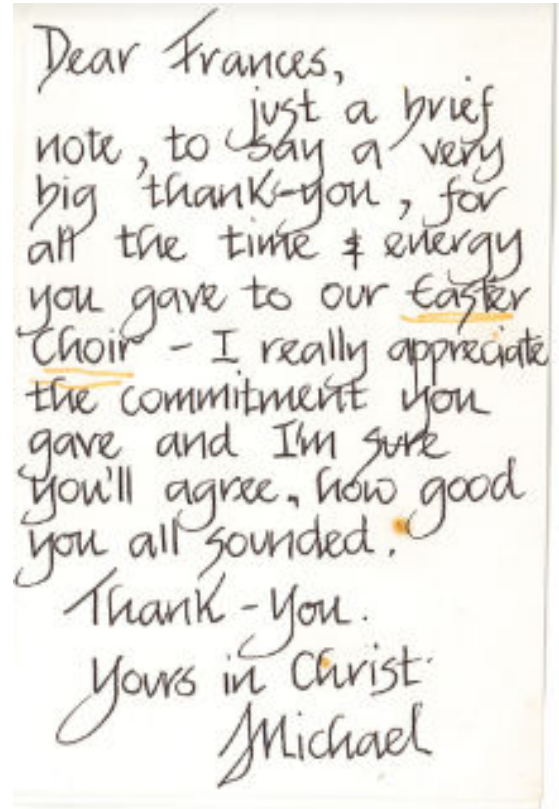 Dear Frances,
just a brief
note, to say a very
big thank-you, for
all the time & energy
you gave to our Easter
Choir - I really appreciate
the commitment you
gave and I'm sure
you'll agree, how good
you all sounded.
Thank-You.
Yours in Christ
Michael